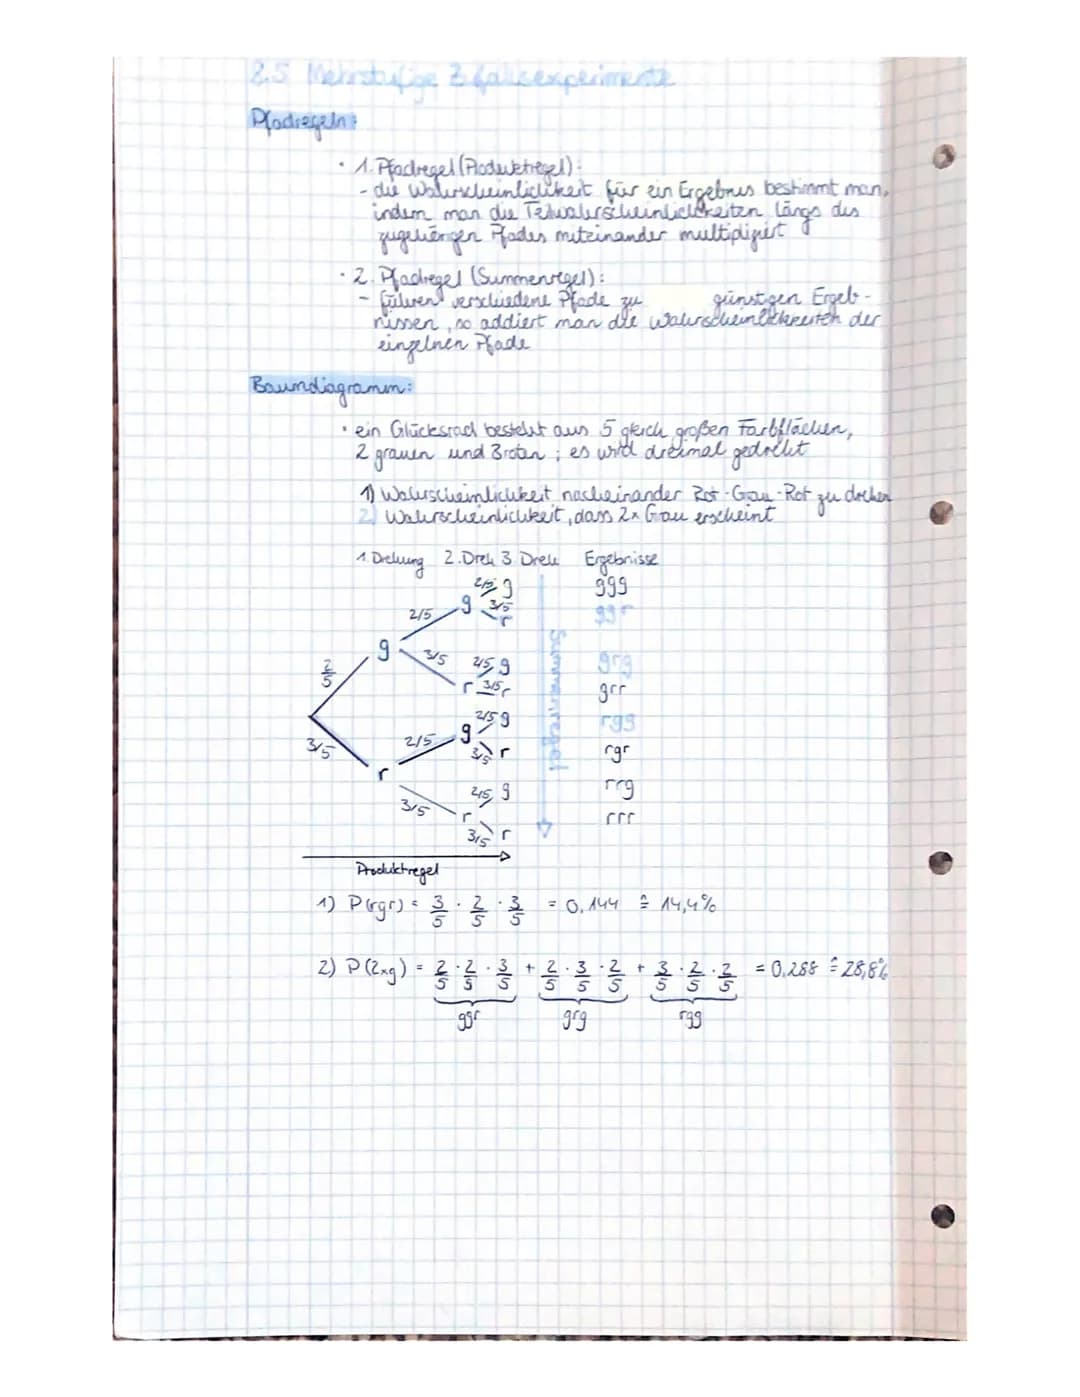 2.5 Mehrstufige Zufallsexperimente
Pfadregeln:
· 1. Pfadregel (Produktregel):
- die Wahrscheinlichkeit für ein Ergebnis bestimmt man,
indem man die Teilwahrscheinlichkeiten längs des
zugehörigen Pfades miteinander multipliziert
· 2. Pfadregel (Summenregel):
- führen verschiedene Pfade zu günstigen Ergeb-
nissen, so addiert man die Wahrscheinlichkeiten der
einzelnen Pfade
Baumdiagramm:
· ein Glücksrad besteht aus 5 gleich großen Farbflächen,
2 grauen und 3 roten; es wird dreimal gedreht
1) Wahrscheinlichkeit nacheinander Rot-Grau-Rot zu drehen
2) Wahrscheinlichkeit, dass 2x Grau erscheint
1. Drehung 2. Dreh 3 Dreh Ergebnisse
2/5 g ggg
g 3/5 r ggr
2/5
g 3/5 2/5 g grg
2/5 r 3/5 r grr
2/5 g rgg
3/5 2/5 g 3/5 r rgr
r
3/5 2/5 g rrg
r 3/5 r rrr
Summenregel
Produktregel
1) P(rgr) = 3/5 · 2/5 · 3/5 = 0,144 ≙ 14,4%
2) P(2xg) = 2/5 · 2/5 · 3/5 + 2/5 · 3/5 · 2/5 + 3/5 · 2/5 · 2/5 = 0,288 ≙ 28,8%
ggr grg rgg